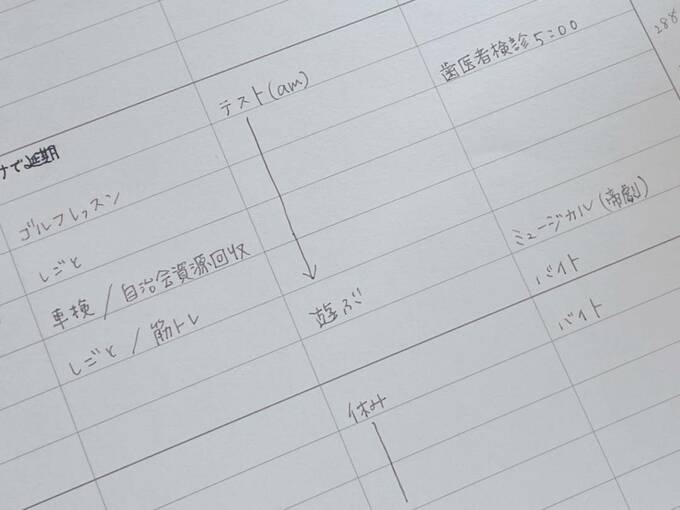 ナで延期
ゴルフレッスン
しごと
車検 / 自治会資源回収
しごと / 筋トレ
テスト(am)
遊ぶ
休み
歯医者検診 5:00
ミュージカル(帝劇)
バイト
バイト
288